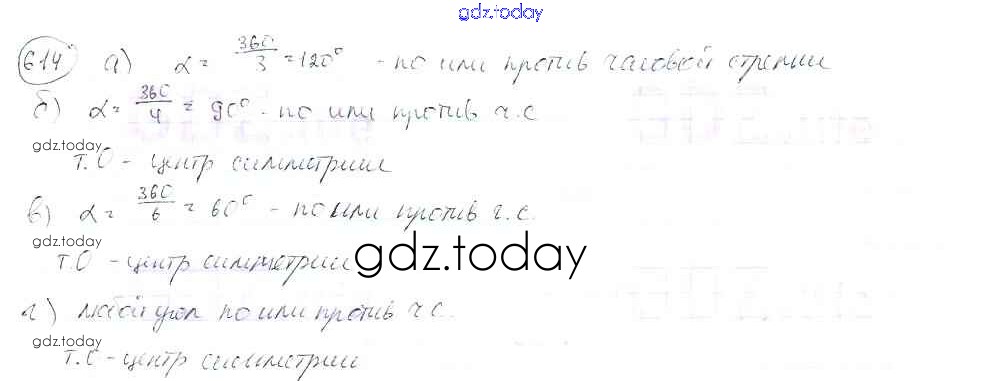 gdz.today
614 а) α = 360/3 = 120° - по или против часовой стрелки
б) α = 360/4 = 90° - по или против ч.с
gdz.today
т.О - центр симметрии
в) α = 360/6 = 60° - по или против ч.с.
gdz.today
т.О - центр симметрии
gdz.today
г) любой угол по или против ч с.
gdz.today
т.О - центр симметрии